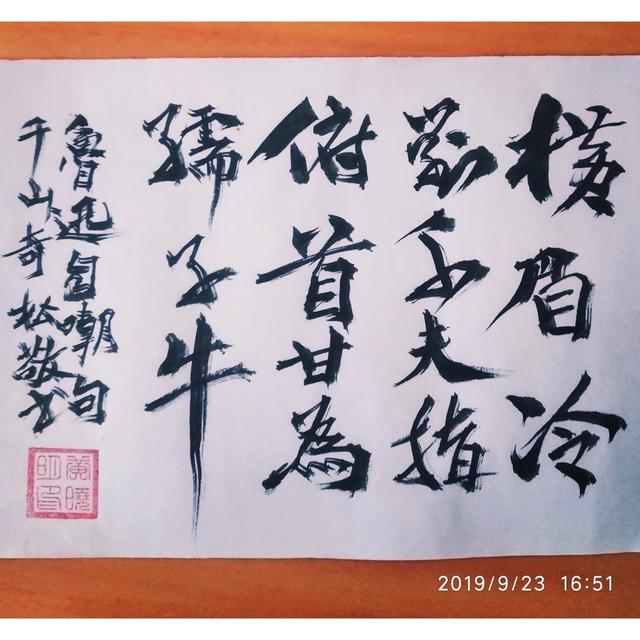 横眉冷
对千夫指
俯首甘為
孺子牛
魯迅自嘲句
千山奇松敬书
2019/9/23 16:51